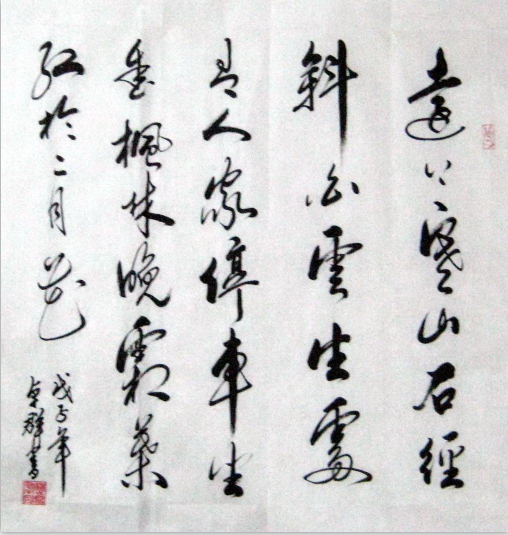 遠上寒山石徑
斜白雲生處
有人家停車坐
愛楓林晚霜葉
紅於二月花
戊子年
卓群書